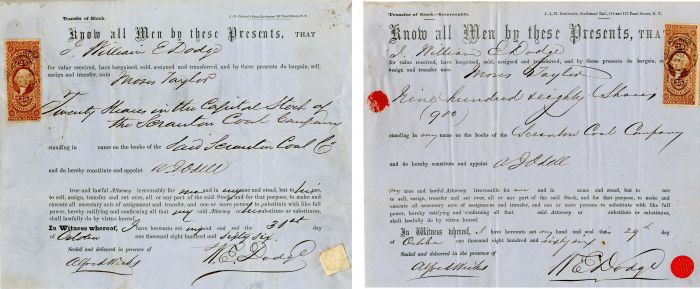 Transfer of Stock.
Know all Men by these Presents, THAT
I William E Dodge
for value received, have bargained, sold, assigned and transferred, and by these presents do bargain, sell,
assign and transfer, unto Moses Taylor
Twenty Shares in the Capital Stock of
the Scranton Coal Company
standing in name on the books of the Said Scranton Coal Co
and do hereby constitute and appoint
true and lawful Attorney irrevocably for me and in my name and stead, but to his use
to sell, assign, transfer and set over, all or any part of the said Stock, and for that purpose, to make and
execute all necessary acts of assignment and transfer, and one or more persons to substitute with like full
power, hereby ratifying and confirming all that my said Attorney or substitutes,
shall lawfully do by virtue hereof.
In Witness whereof, I have hereunto set my hand and the 31st day
of October one thousand eight hundred and sixty six.
Sealed and delivered in presence of
Alfred Wicks
W. E. Dodge
25
Transfer of Stock.—Irrevocable.
Know all Men by these Presents, THAT
I, William E Dodge
for value received, have bargained, sold, assigned and transferred, and by these presents do bargain, sell,
assign and transfer unto Moses Taylor
Nine hundred & eighty Shares
(980)
standing in my name on the books of the Scranton Coal Company
and do hereby constitute and appoint
my true and lawful Attorney irrevocable for me and in name and stead, but to use
to sell, assign, transfer, and set over, all or any part of the said Stock, and for that purpose, to make and
execute all necessary acts of assignment and transfer, and one or more persons to substitute with like full
power, hereby ratifying and confirming all that said Attorney or substitutes
shall lawfully do by virtue hereof.
In Witness whereof, I have hereunto set my hand and seal the 29th day
of October one thousand eight hundred and sixty six
Sealed and delivered in the presence of
Alfred Wicks
W. E. Dodge
25